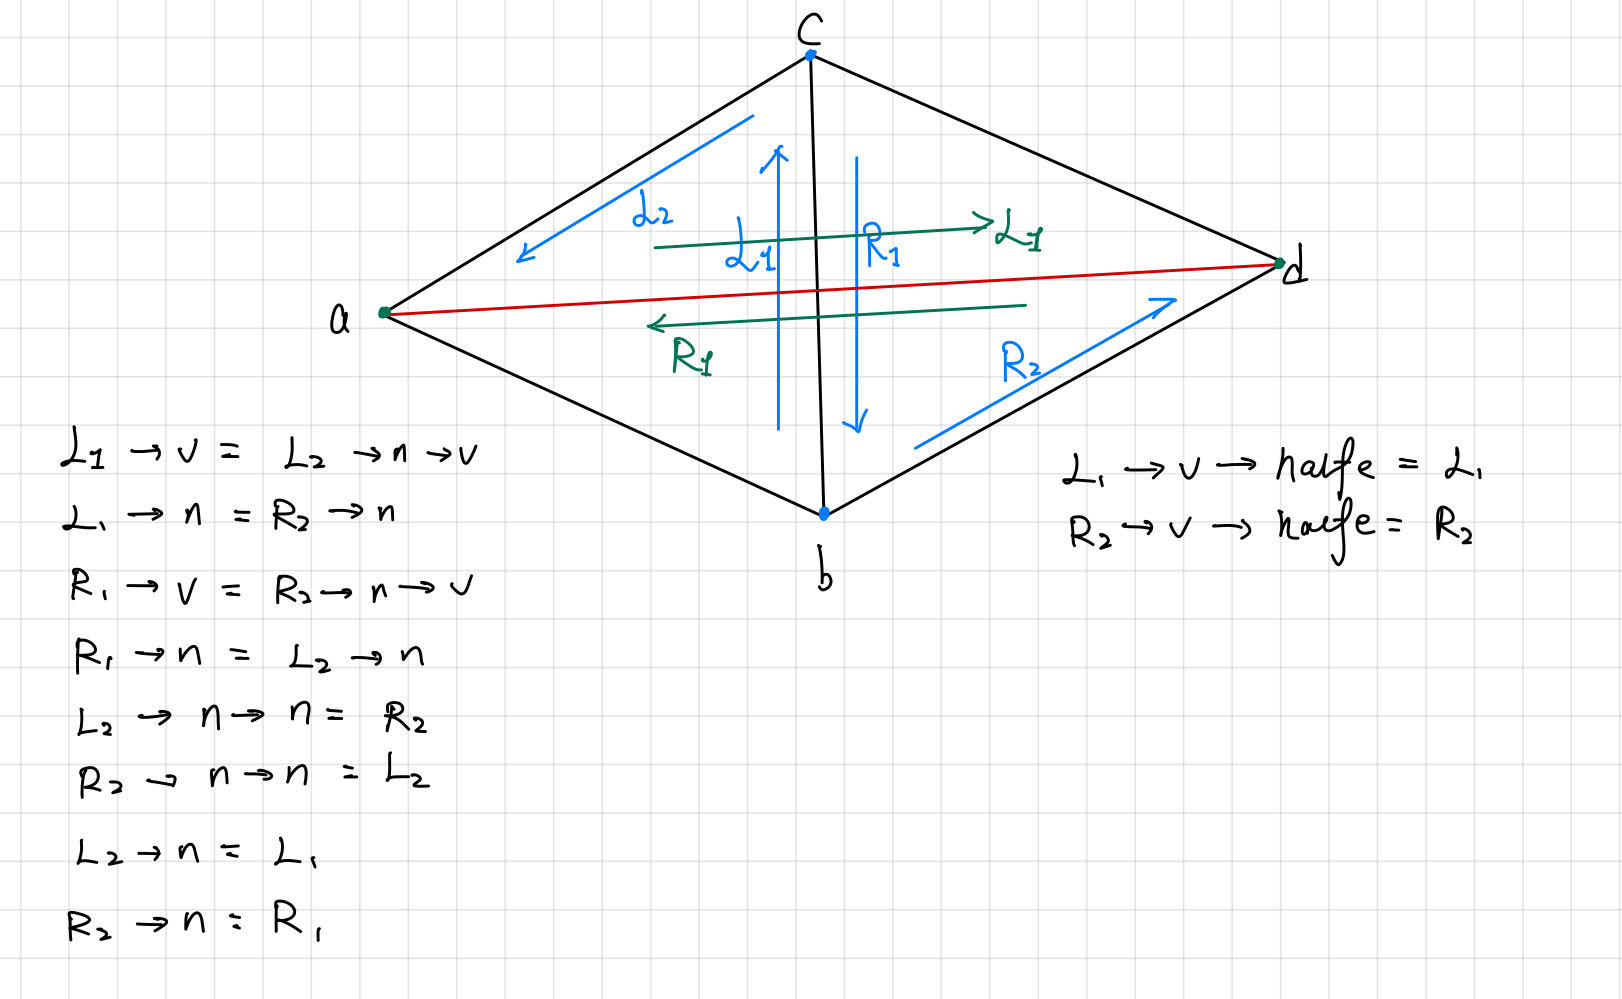 C
L2
L1
R1
L1
d
a
R1
R2
b
L1 → v = L2 → n → v
L1 → n = R2 → n
R1 → v = R2 → n → v
R1 → n = L2 → n
L2 → n → n = R2
R2 → n → n = L2
L2 → n = L1
R2 → n = R1
L1 → v → halfe = L1
R2 → v → halfe = R2